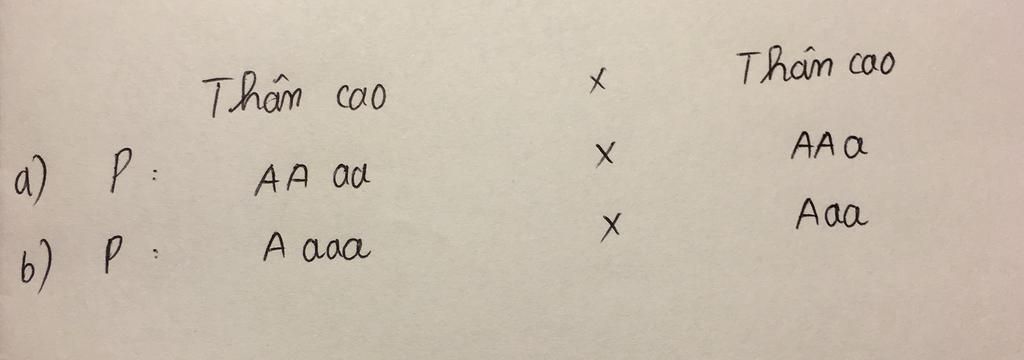 Thân cao x Thân cao
a) P: AA aa x AA a
b) P: A aaa x Aaa